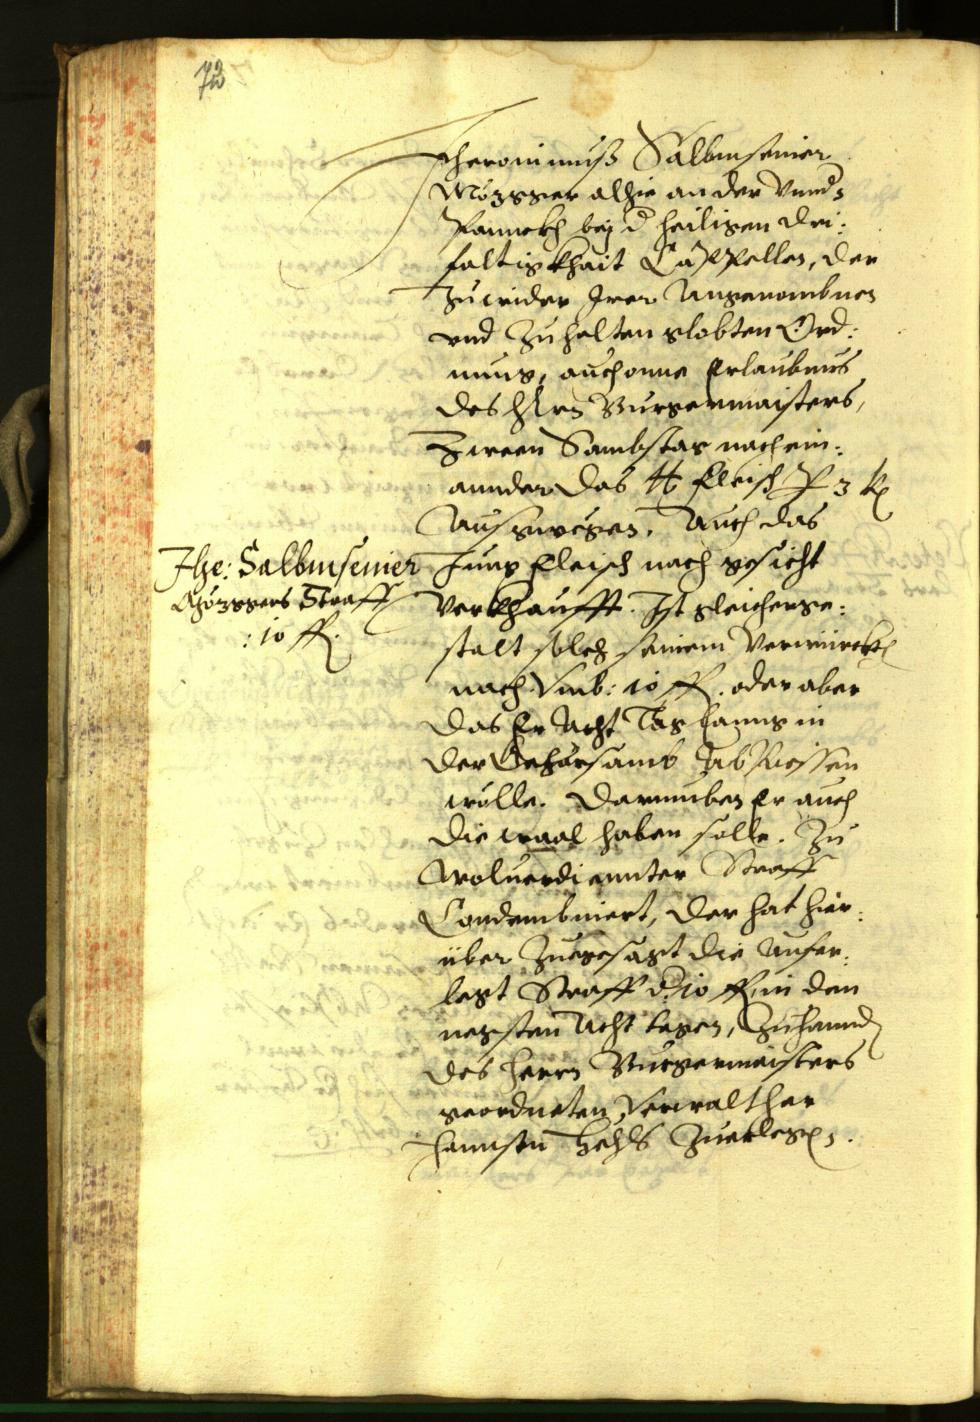 72
Jheronimuß Salbmsenier
Mözgger alhie an der Vnnd
Pannckh bej d heiligen Dri:
faltigkhait Cappellen, der
Zuwider Irer Angenombnen
vnd Zuhalten globten Ord:
nung, auch onne Erlaubnus
des Hern Burgermaisters,
Zween Sambstag nachein:
annder das ℔ fleisch P 3 kr
Außgwegen. Auch das
Jung fleisch nach gesicht
Verkhaufft. Ist gleicherge:
stalt solch seinem Verwürckh
nach Vmb: 10 fl. oder aber
das Er Acht Tag lanng in
der Gehorsamb Abbiessen
wölle. Darnneben Er auch
die waal haben solle. Zu
Wolverdiennter Straff
Condembniert, der hat hier:
über Zuegesagt die Aufer:
legt Straff d. 10 fl. in den
negsten Acht tagen, Zuhannd
des herrn Burgermaisters
geordneten Verwalther
Hannsen Zuerlegen.
Jhe: Salbmsenier
Mözggers Straff
: 10 fl.